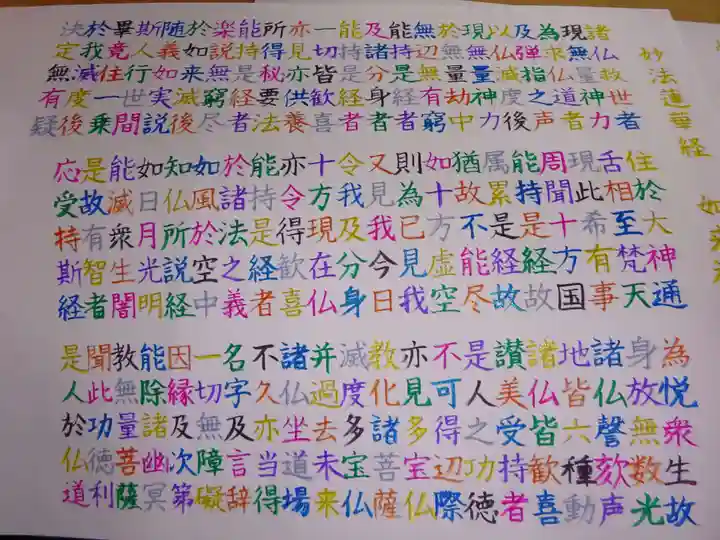 妙法蓮華経 如来
諸仏救世者 住於大神通 為悦衆生故
現無量神力 舌相至梵天 身放無数光
為求仏道者 現此希有事 諸仏謦欬声
及弾指之声 周聞十方国 地皆六種動
以仏滅度後 能持是経故 諸仏皆歓喜
現無量神力 属累是経故 讃美受持者
於無量劫中 猶故不能尽 是人之功徳
無辺無有窮 如十方虚空 不可得辺際
能持是経者 則為已見我 亦見多宝仏
及諸分身者 又見我今日 教化諸菩薩
能持是経者 令我及分身 滅度多宝仏
一切皆歓喜 十方現在仏 并過去未来
亦見亦供養 亦令得歓喜 諸仏坐道場
所得秘要法 能持是経者 不久亦当得
能持是経者 於諸法之義 名字及言辞
楽説無窮尽 如風於空中 一切無障礙
於如来滅後 知仏所説経 因縁及次第
随義如実説 如日月光明 能除諸幽冥
斯人行世間 能滅衆生闇 教無量菩薩
畢竟住一乗 是故有智者 聞此功徳利
於我滅度後 応受持斯経 是人於仏道
決定無有疑